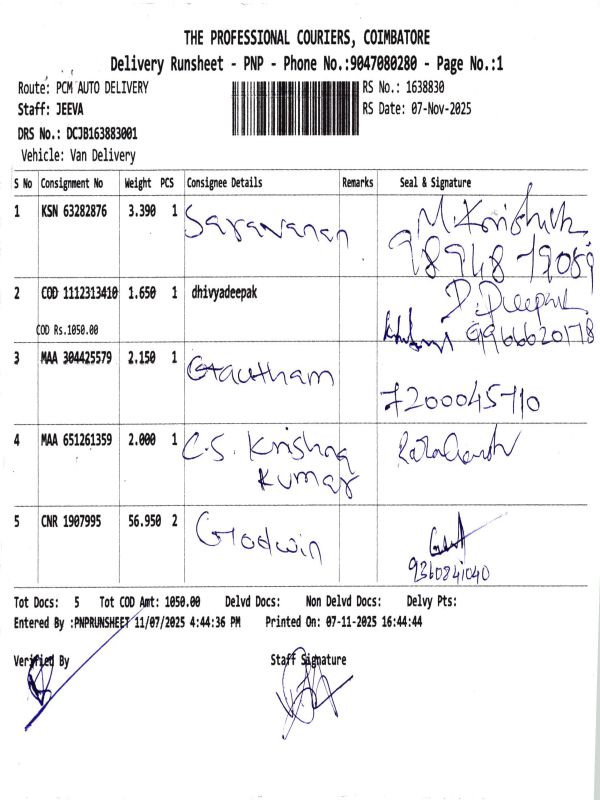 THE PROFESSIONAL COURIERS, COIMBATORE
Delivery Runsheet - PNP - Phone No.:9047080280 - Page No.:1
Route: PCM AUTO DELIVERY RS No.: 1638830
Staff: JEEVA RS Date: 07-Nov-2025
DRS No.: DCJB163883001
Vehicle: Van Delivery
S No Consignment No Weight PCS Consignee Details Remarks Seal & Signature
1 KSN 63282876 3.390 1 Saravanan
2 COD 1112313410 1.650 1 dhivyadeepak D. Deepak
COD Rs.1050.00 9966620178
3 MAA 304425579 2.150 1 Gautham
7200045710
4 MAA 651261359 2.000 1 C.S. Krishna
Kumar
5 CNR 1907995 56.950 2 Godwin
9360841040
Tot Docs: 5 Tot COD Amt: 1050.00 Delvd Docs: Non Delvd Docs: Delvy Pts:
Entered By :PNPRUNSHEET 11/07/2025 4:44:36 PM Printed On: 07-11-2025 16:44:44
Verified By Staff Signature